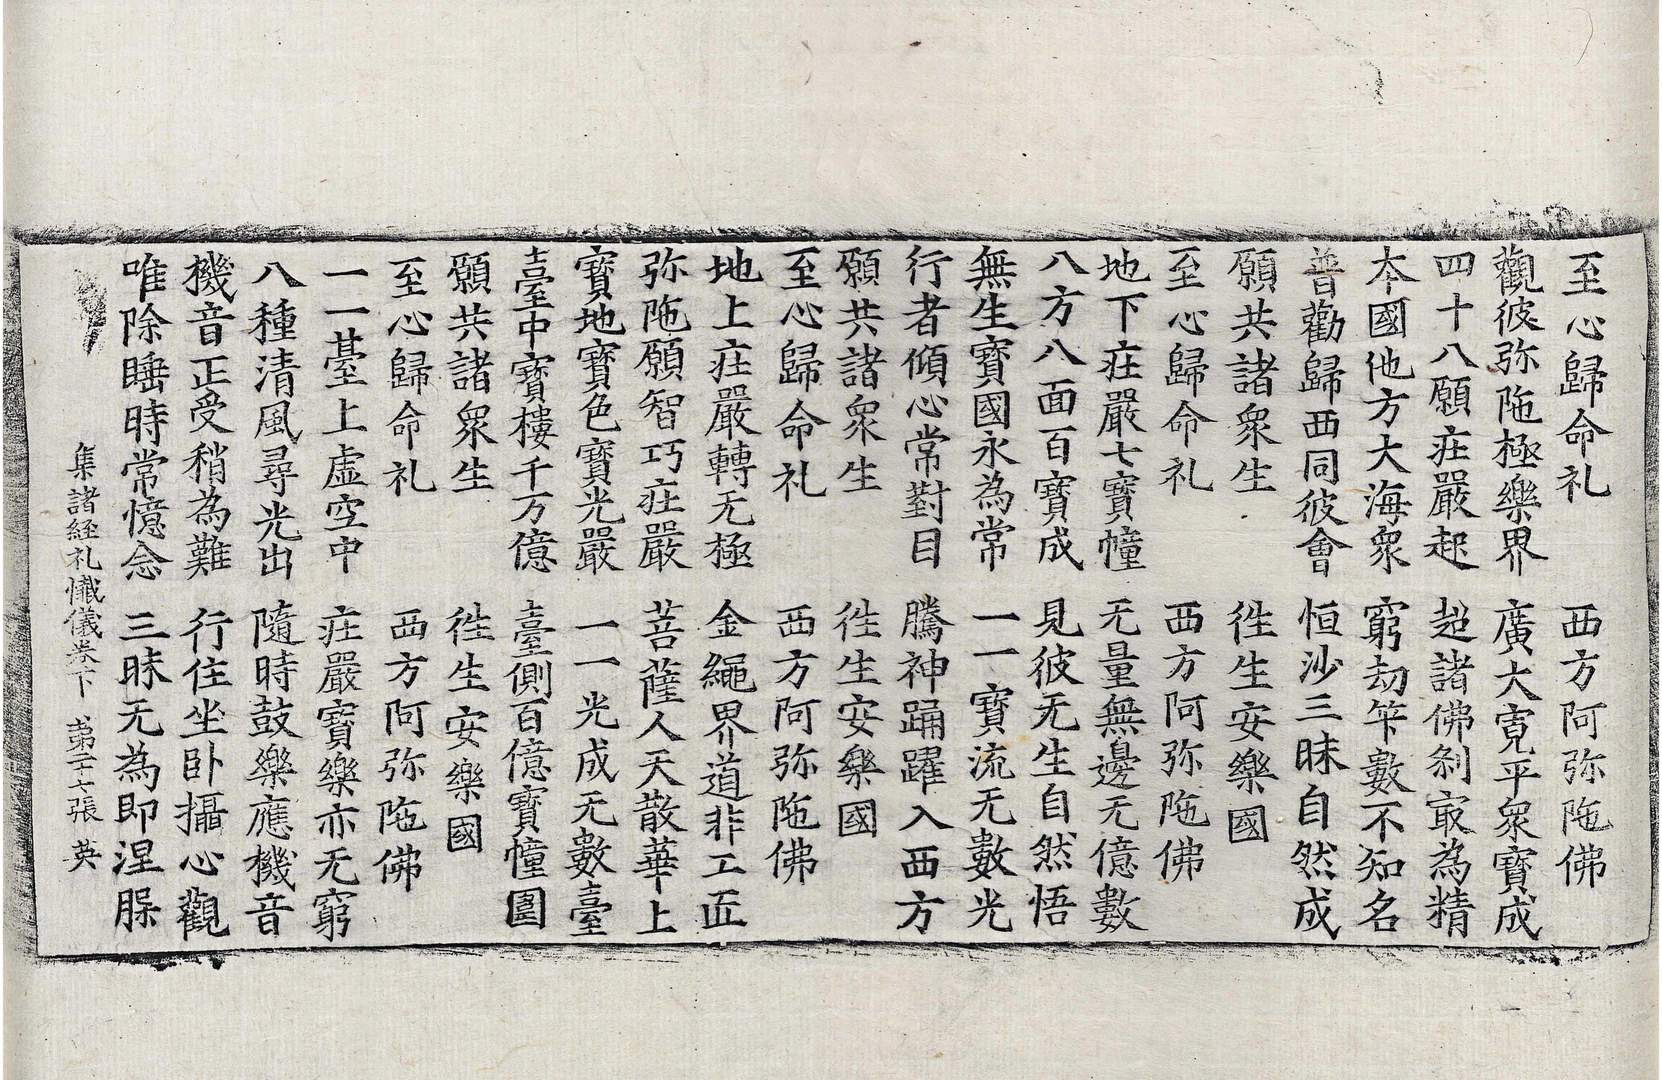 至心歸命礼　西方阿弥陁佛
觀彼弥陁極樂界　廣大寬平衆寶成
四十八願庄嚴起　超諸佛刹㝡為精
本國他方大海衆　窮劫笇數不知名
普勸歸西同彼會　恒沙三昧自然成
願共諸衆生　徃生安樂國
至心歸命礼　西方阿弥陁佛
地下庄嚴七寶幢　无量無邊无億數
八方八面百寶成　見彼无生自然悟
無生寶國永為常　一一寶流无數光
行者傾心常對目　騰神踊躍入西方
願共諸衆生　徃生安樂國
至心歸命礼　西方阿弥陁佛
地上庄嚴轉无極　金繩界道非工匠
弥陁願智巧庄嚴　菩薩人天散華上
寶地寶色寶光嚴　一一光成无數臺
臺中寶樓千万億　臺側百億寶幢圍
願共諸衆生　徃生安樂國
至心歸命礼　西方阿弥陁佛
一一臺上虛空中　庄嚴寶樂亦无窮
八種清風尋光出　隨時鼓樂應機音
機音正受稍為難　行住坐卧攝心觀
唯除睡時常憶念　三昧无為即涅槃
集諸經礼懺儀卷下　第二十七張　英